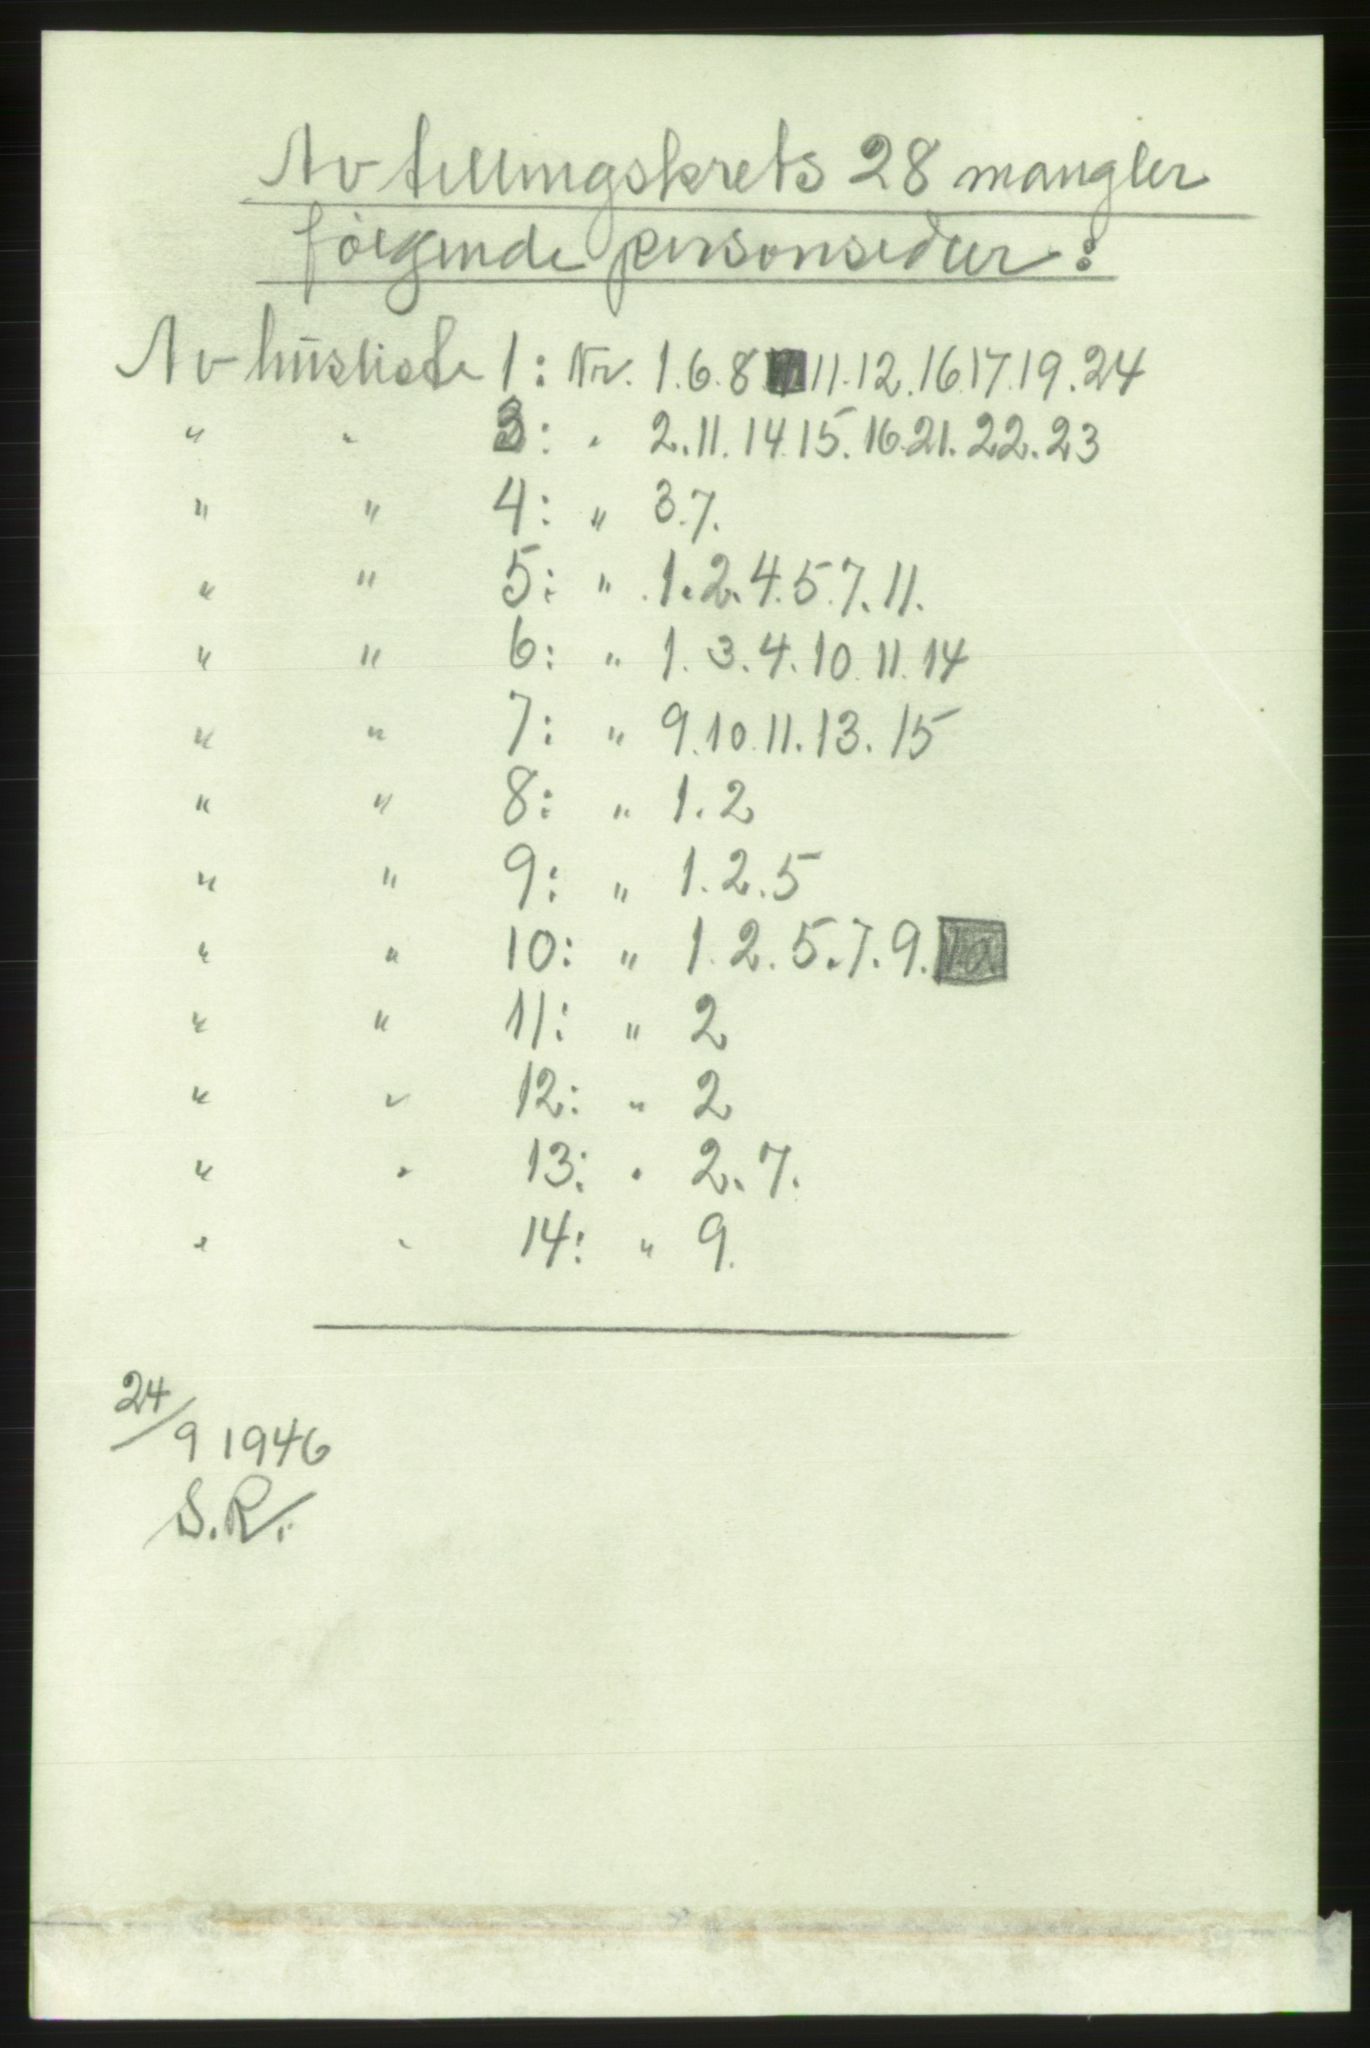 Av tellingskrets 28 mangler
følgende personsedler:
Av husliste 1: Nr. 1.6.8. 11.12.16.17.19.24
" " 3: " 2.11.14.15.16.21.22.23
" " 4: " 3.7.
" " 5: " 1.2.4.5.7.11.
" " 6: " 1.3.4.10.11.14
" " 7: " 9.10.11.13.15
" " 8: " 1.2
" " 9: " 1.2.5
" " 10: " 1.2.5.7.9.
" " 11: " 2
" " 12: " 2
" " 13: " 2.7.
" " 14: " 9.
24/9 1946
S.R.